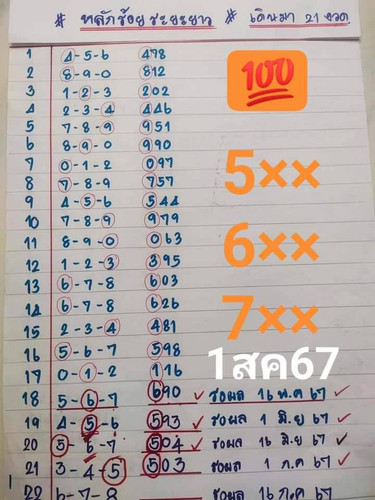 # หลักร้อย ระยะยาว # เดินมา 21 งวด
1 4-5-6 478
2 8-9-0 812
3 1-2-3 202
4 2-3-4 446
5 7-8-9 951
6 8-9-0 990
7 0-1-2 097
8 7-8-9 757
9 4-5-6 544
10 7-8-9 979
11 8-9-0 063
12 1-2-3 395
13 6-7-8 603
14 6-7-8 626
15 2-3-4 481
16 5-6-7 598
17 0-1-2 116
18 5-6-7 690 ✓ รอผล 16 พ.ค 67 ✓
19 4-5-6 593 ✓ รอผล 1 มิ.ย 67 ✓
20 5-6-7 504 ✓ รอผล 16 มิ.ย 67 ✓
21 3-4-5 503 ✓ รอผล 1 ก.ค 67 ✓
22 6-7-8 รอผล 16 ก.ค 67
100
5××
6××
7××
1สค67